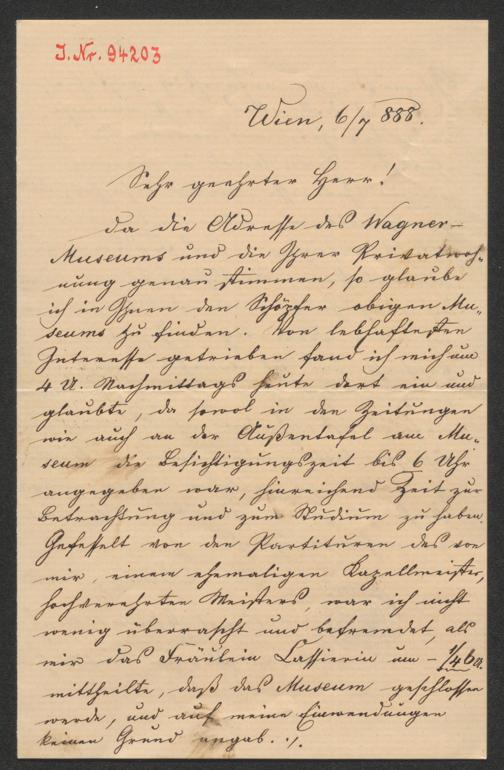 J. Nr. 94203
Wien, 6/7 888.
Sehr geehrter Herr!
Da die Adresse des Wagner-
Museums und die Ihrer Privatwoh-
nung genau stimmen, so glaube
ich in Ihnen den Schöpfer obigen Mu-
seums zu finden. Von lebhaftesten
Interesse getrieben fand ich mich um
4 U. Nachmittags heute dort ein und
glaubte, da sowol in den Zeitungen
wie auch an der Außentafel am Mu-
seum die Besichtigungszeit bis 6 Uhr
angegeben war, hinreichend Zeit zur
Betrachtung und zum Studium zu haben.
Gefesselt von den Partituren des von
mir, einem ehemaligen Kapellmeister,
hochverehrten Meisters, war ich nicht
wenig überrascht und befremdet, als
mir das Fräulein Cassierin um – 1/4 6 U.
mittheilte, daß das Museum geschlossen
werde, und auf meine Einwendungen
keinen Grund angab. ./.